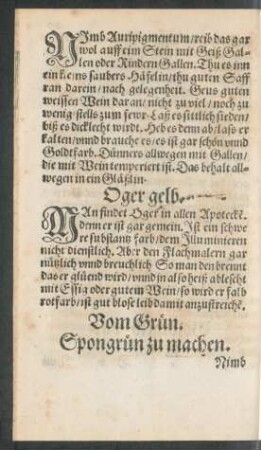 NImb Auripigmentum/reib das gar
wol auff eim Stein mit Geiß Gal-
len oder Rindern Gallen. Thu es inn
ein kleins saubers Häfelin/thu guten Saff
ran darein/nach gelegenheit. Geus guten
weissen Wein daran/nicht zu viel/noch zu
wenig/stells zum fewr/Laß es sittlich sieden/
biß es dicklecht wirdt. Heb es denn ab/laß er
kalten/vnnd brauche es/es ist gar schön vnnd
Goldtfarb. Dünners allwegen mit Gallen/
die mit Wein temperiert ist. Das behalt all-
wegen in ein Gläßlin.
Oger gelb.
MAn findet Oger in allen Apotecke.
Denn er ist gar gemein. Ist ein schwe
re substantz farb/dem Illuminieren
nicht dienstlich. Aber den Flachmalern gar
nützlich vnnd breuchlich So man den brennt
das er glüend wird/vnnd in also heiß ablescht
mit Essig oder gutem Wein/so wird er falb
rotfarb/ist gut blose leib damit anzustreichē.
Vom Grün.
Spongrün zu machen.
Nimb